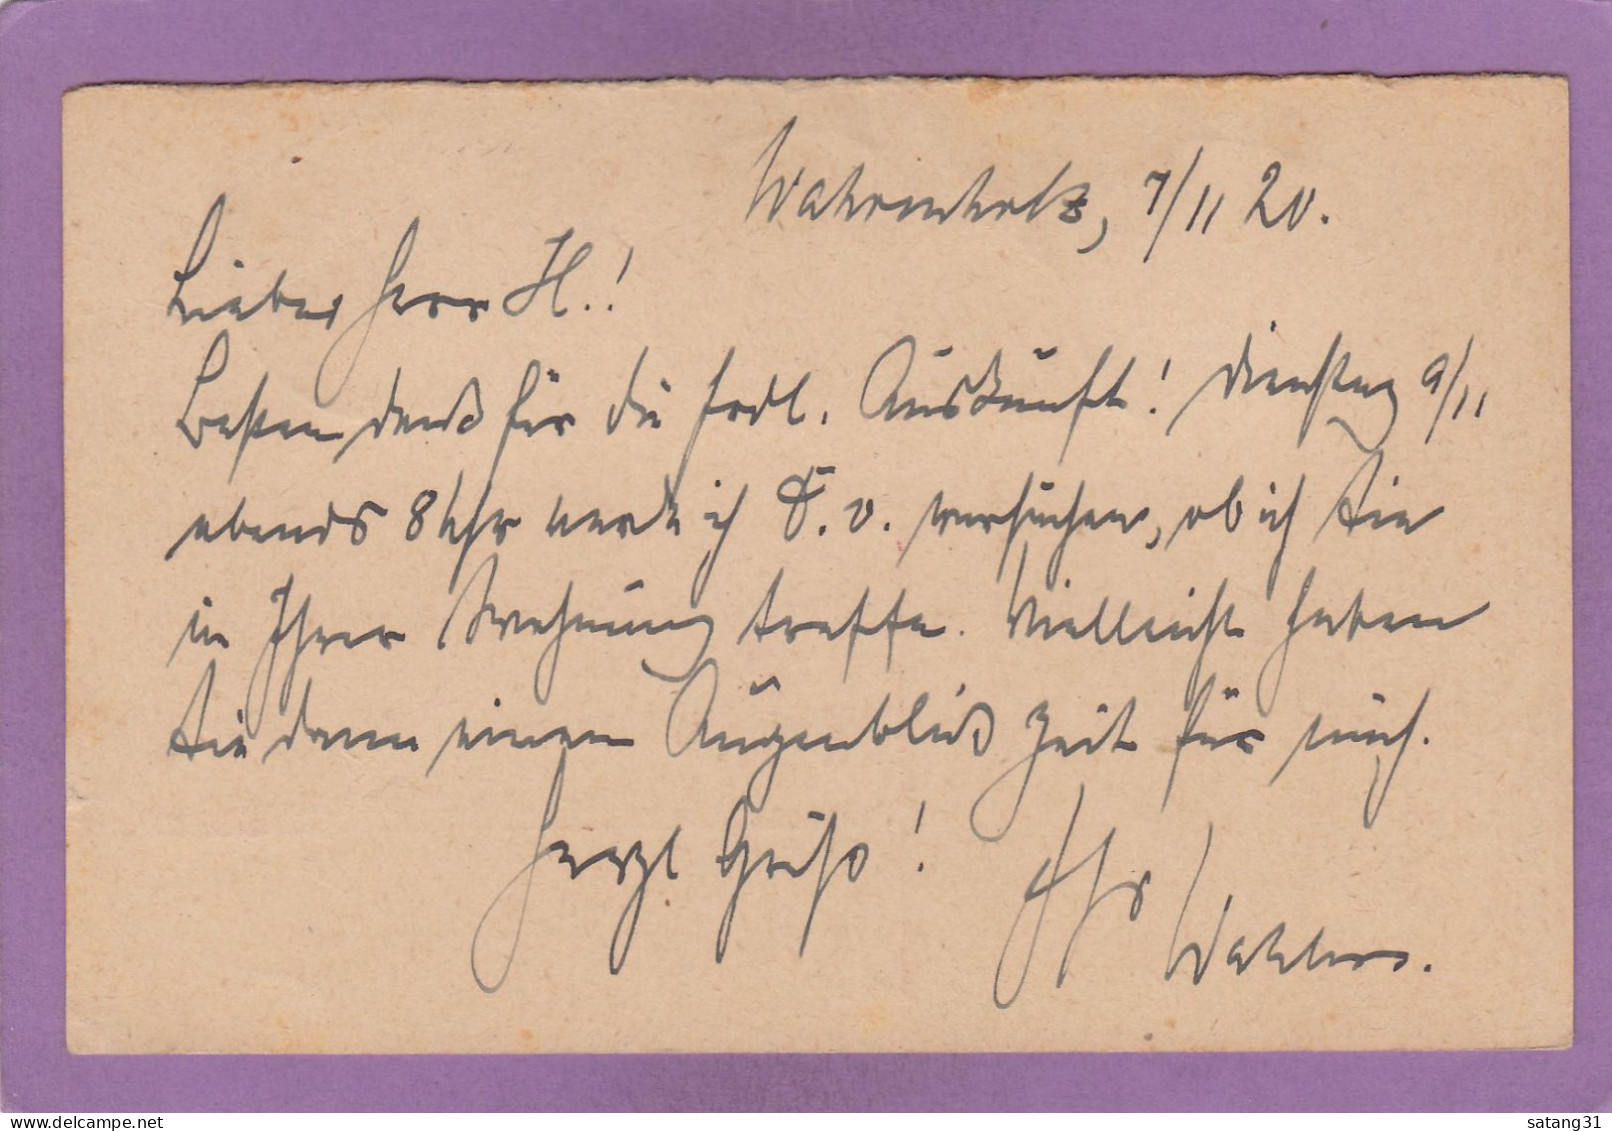 Wahrenholz, 7/11 20.
Lieber Herr H.!
Besten Dank für die frdl. Auskunft! Dienstag 9/11
abends 8 Uhr werde ich D. v. versuchen, ob ich Sie
in Ihrer Wohnung treffe. Vielleicht haben
Sie dann einen Augenblick Zeit für mich.
Herzl Gruß! Ihr
Wahlers.
satang31